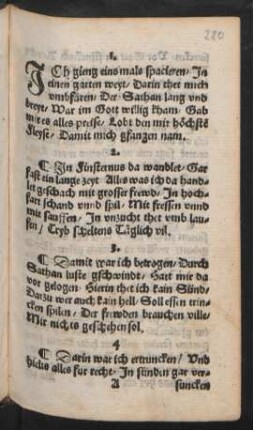 280
1.
ICh gieng eins mals spacieren / In
einen garten weyt / Darin thet mich
vmbfüren / Der Sathan lang vnd
breyt / War im Gott willig kham / Gab
mir es alles preise / Lobt den mit höchste
fleyse / Damit mich gfangen nam.
2.
¶ In Finsternus da wandlet / Gar
fast ein lange zeyt Alles was ich da hand-
let geschach mit grosser frewd / In hoch-
fart schand vnnd spil / Mit fressen vnnd
mit sauffen / In vnzucht thet vmb lau-
fen / Tryb scheltens Täglich vil.
3.
¶ Damit war ich betrogen / Durch
Sathan luste gschwindt / Hatt mir da
vor gelogen / Hierin thet ich kain Sünd /
Darzu wer auch kain hell / Soll essen trin-
cken spilen / Der frewden brauchen ville /
Mir nichts geschehen sol.
4
¶ Darin war ich ertruncken / Vnd
hielts alles fur recht / In sünden gar ver-
A suncken